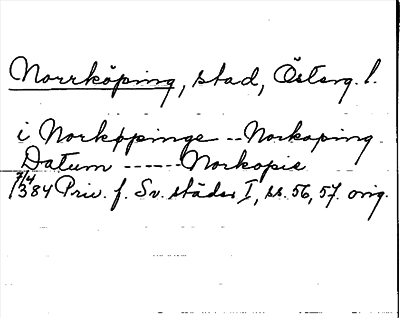 Norrköping, stad, Österg. l.
i Norkøppinge -- Norkoping
Datum ----- Norkopie
7/4
1384 Priv. f. Sv. städer I, ss. 56, 57. orig.